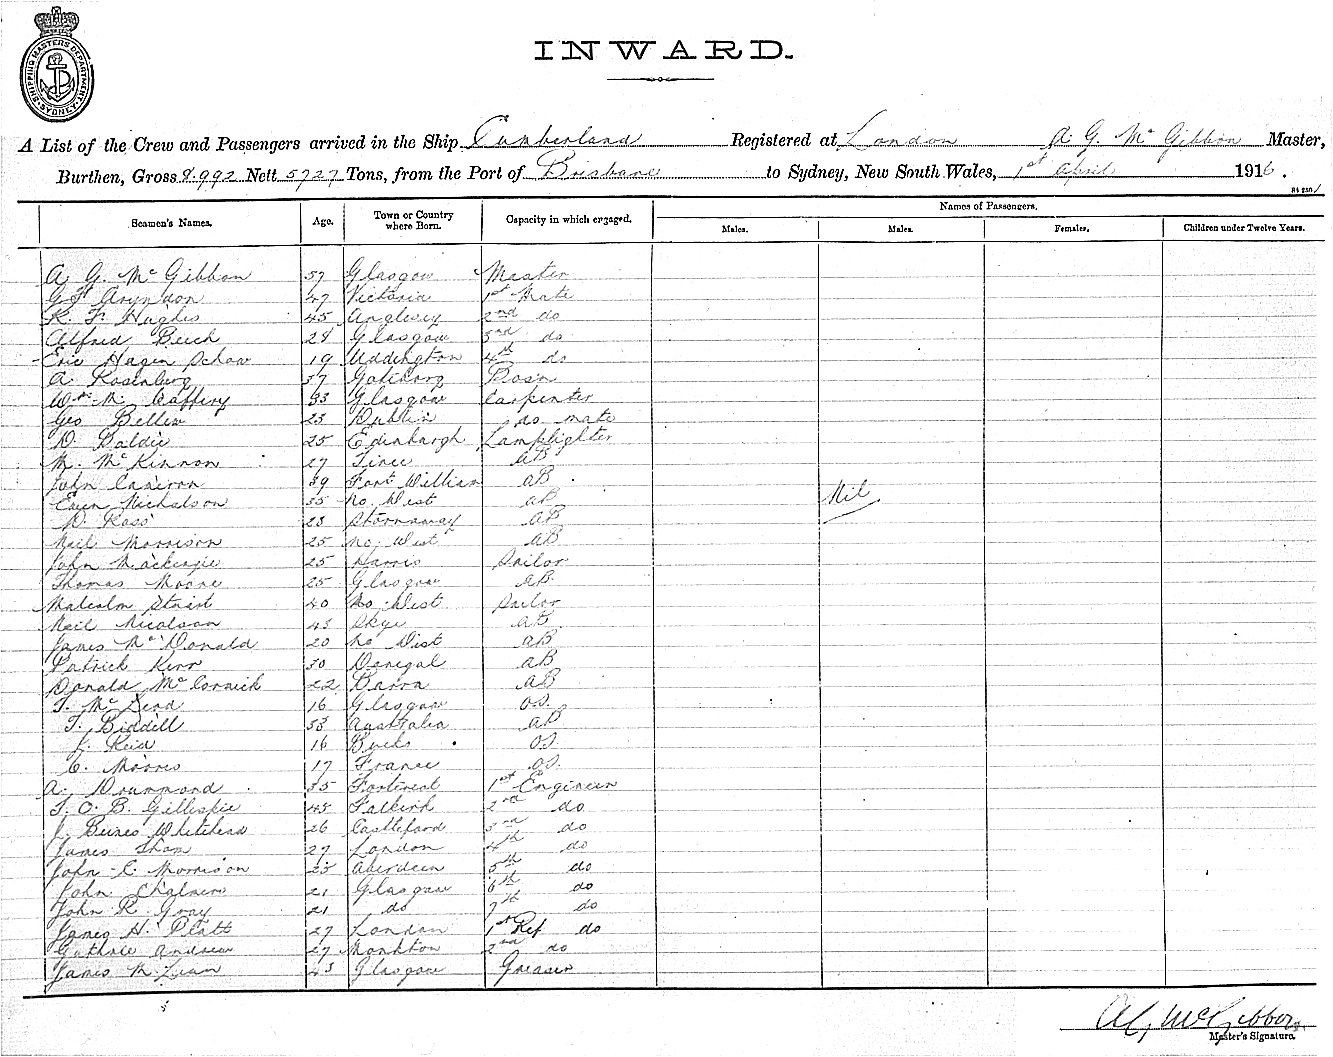 SHIPPING MASTERS DEPARTMENT SYDNEY
INWARD.
A List of the Crew and Passengers arrived in the Ship Cumberland Registered at London A. G. Mc Gibbon Master,
Burthen, Gross 8.992 Nett 5727 Tons, from the Port of Brisbane to Sydney, New South Wales, 1st April 1916.
Seamen's Names. Age. Town or Country where Born. Capacity in which engaged. Names of Passengers.
Males. Males. Females. Children under Twelve Years.
A. G. Mc Gibbon 57 Glasgow Master
G F Aryndon 47 Victoria 1st Mate
R. F. Hughes 45 Anglesey 2nd do
Alfred Beech 28 Glasgow 3rd do
Eric Hagen Schow 19 Uddington 4th do
A. Rosenberg 37 Goteborg Bosn
Wm Mc Caffery 33 Glasgow Carpenter
Geo Bellew 23 Dublin do mate
D. Baldie 25 Edinburgh Lamplighter
M. McKinnon 27 Tiree AB
John Cameron 39 Fort William AB
Ewen Nicholson 35 No. Uist AB Nil
D. Ross 23 Stornaway AB
Neil Morrison 25 No. Uist AB
John Mackenzie 25 Harris Sailor
Thomas Moore 25 Glasgow AB
Malcolm Stuart 40 No. Uist Sailor
Neil Nicolson 43 Skye AB
James McDonald 20 No Uist AB
Patrick Kerr 30 Donegal AB
Donald Mc Cormick 22 Barra AB
T. Mc 16 Glasgow O.S.
T. Biddell 33 Australia AB
J. Reid 16 Bucks OS
C. Morris 17 France OS.
A. Drummond 35 1st Engineer
T. O. B. Gillespie 45 Falkirk 2nd do
J. Whitehead 26 Castleford 3rd do
James Shaw 27 London 4th do
John C. Morrison 23 Aberdeen 5th do
John Chalmers 21 Glasgow 6th do
John R. Gray 21 do 7th do
James H. Platt 27 London 1st Ref do
Guthrie Andrew 27 Monkton 2nd do
James McLean 43 Glasgow Greaser
A G McGibbon
Master's Signature.